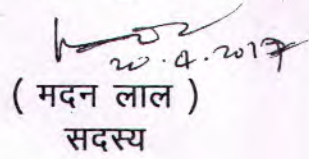 20.4.2017
( मदन लाल )
सदस्य